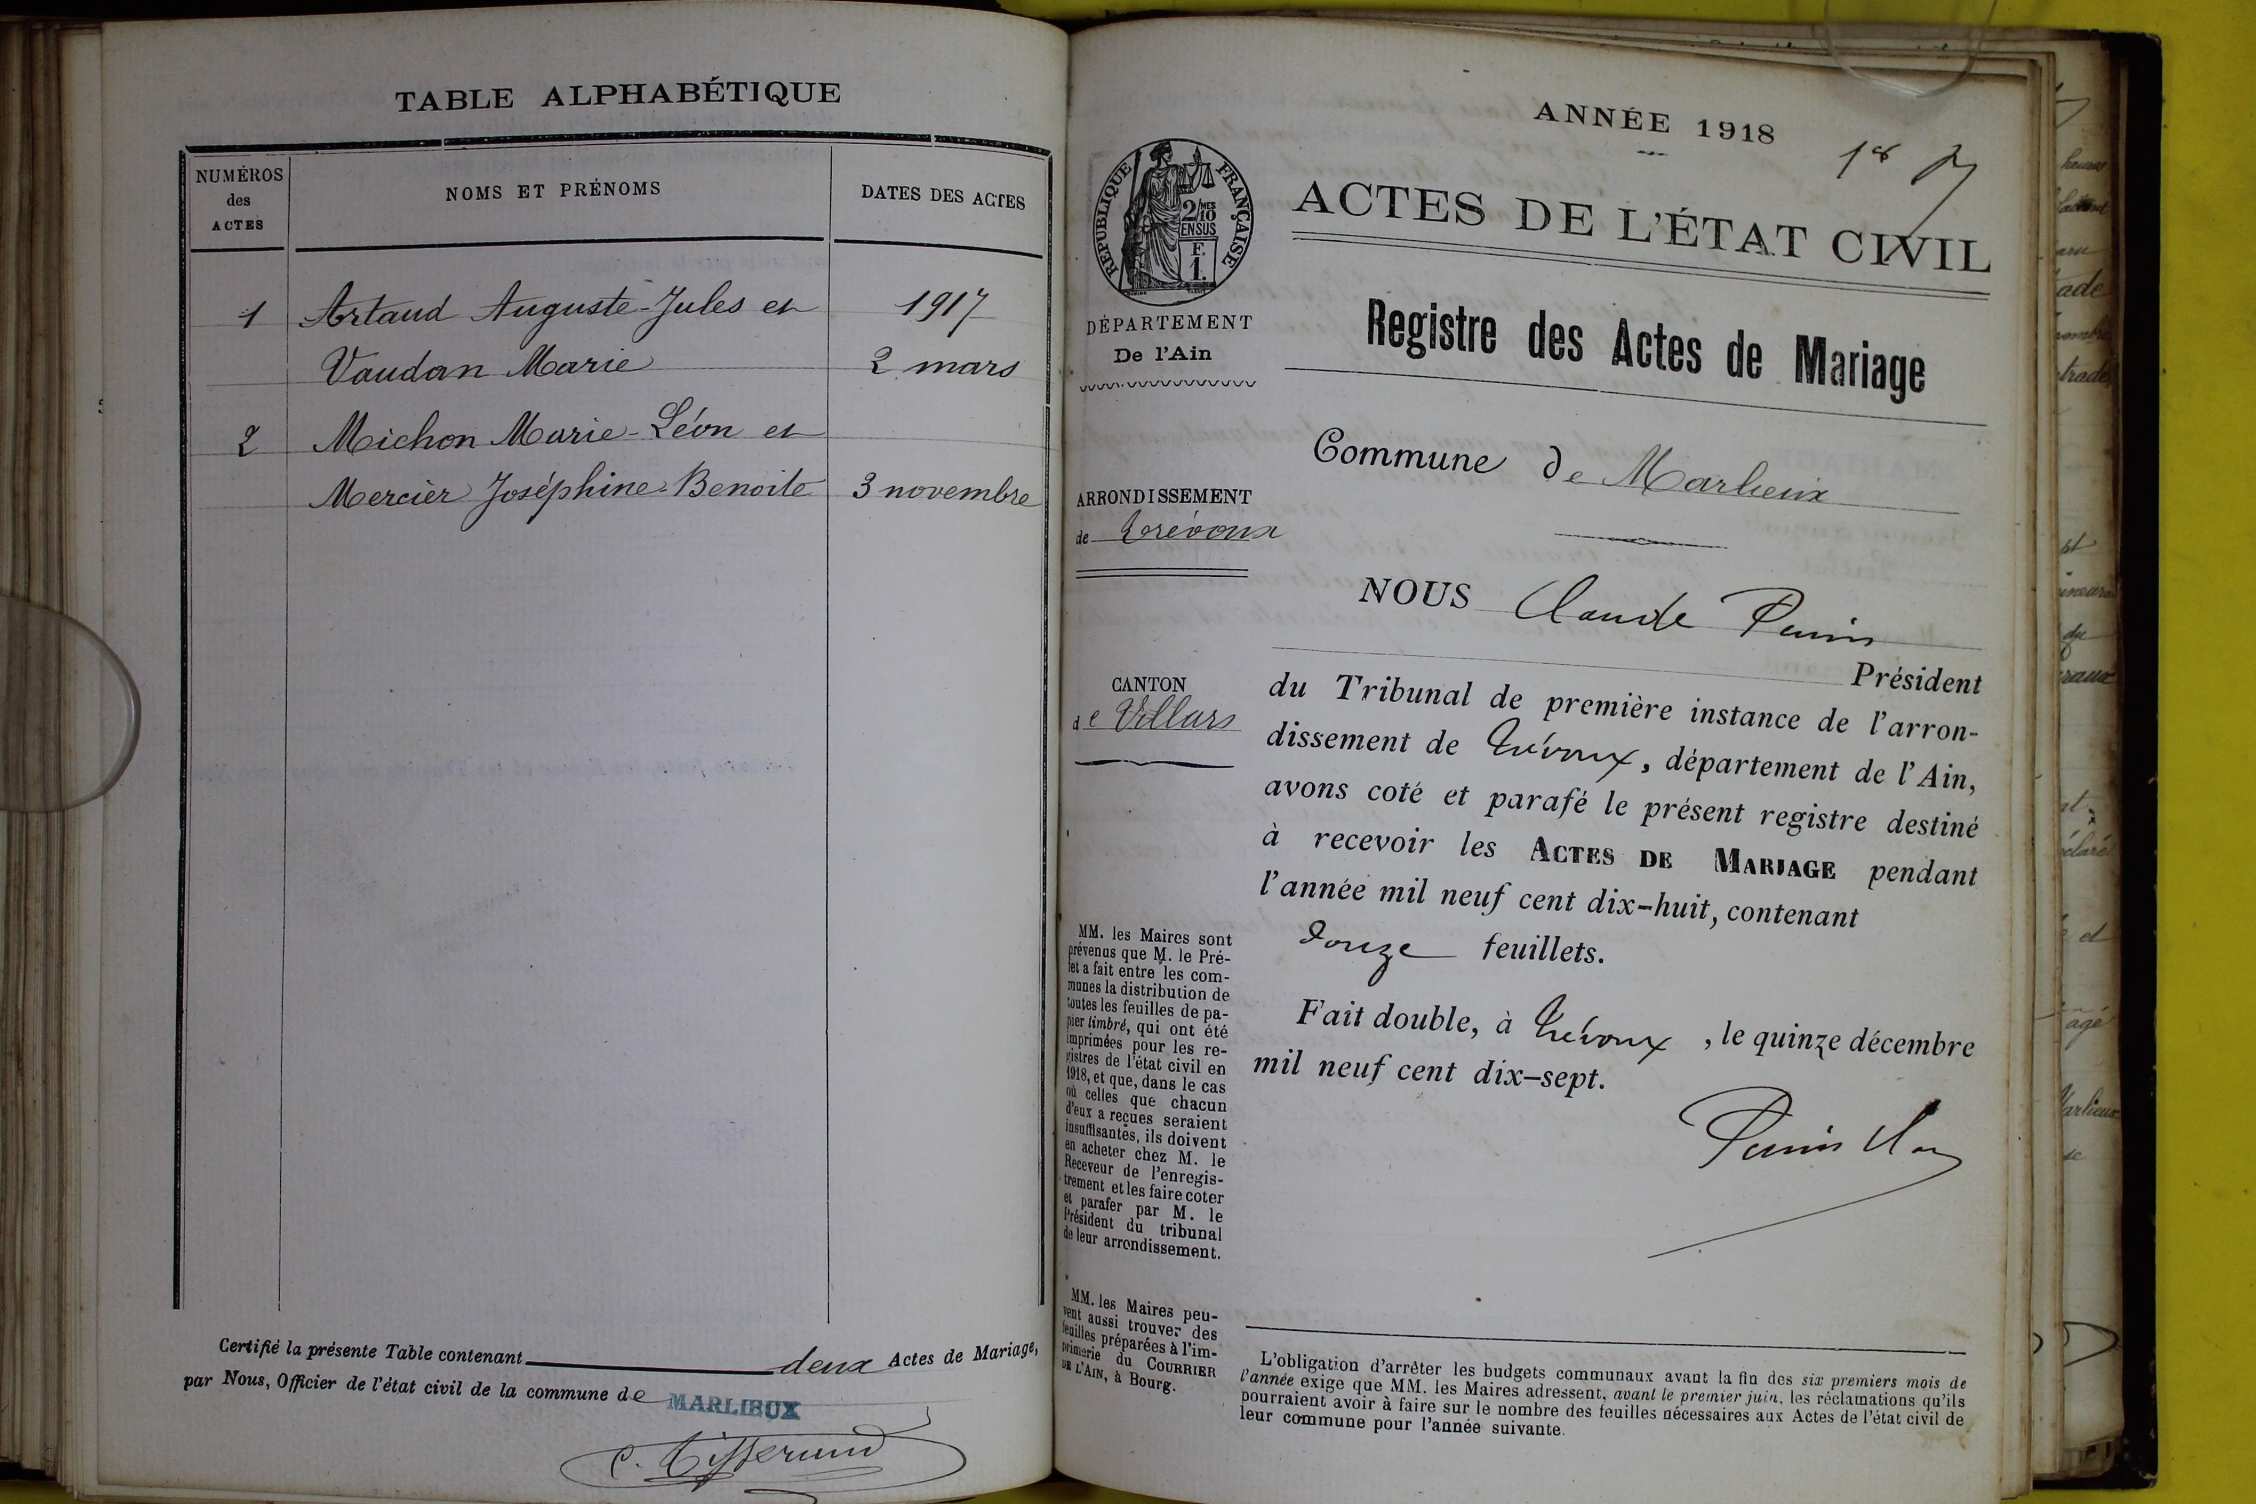 TABLE ALPHABÉTIQUE
NUMÉROS
des
ACTES
NOMS ET PRÉNOMS
DATES DES ACTES
1 Artaud Auguste-Jules et 1917
Vaudan Marie 2 mars
2 Michon Marie-Léon et
Mercier Joséphine-Benoite 3 novembre
Certifié la présente Table contenant deux Actes de Mariage,
par Nous, Officier de l'état civil de la commune de MARLIEUX
C. Tisserand
ANNÉE 1918
ACTES DE L'ÉTAT CIVIL
RÉPUBLIQUE FRANÇAISE
2/10 MES
EN SUS
F.
1.
DÉPARTEMENT
De l'Ain
Registre des Actes de Mariage
Commune de Marlieux
ARRONDISSEMENT
de Trévoux
CANTON
de Villars
NOUS Claude
Président
du Tribunal de première instance de l'arron-
dissement de Trévoux, département de l'Ain,
avons coté et parafé le présent registre destiné
à recevoir les ACTES DE MARIAGE pendant
l'année mil neuf cent dix-huit, contenant
douze feuillets.
Fait double, à Trévoux, le quinze décembre
mil neuf cent dix-sept.
MM. les Maires sont
prévenus que M. le Pré-
fet a fait entre les com-
munes la distribution de
toutes les feuilles de pa-
pier timbré, qui ont été
imprimées pour les re-
gistres de l'état civil en
1918, et que, dans le cas
où celles que chacun
d'eux a reçues seraient
insuffisantes, ils doivent
en acheter chez M. le
Receveur de l'enregis-
trement et les faire coter
et parafer par M. le
Président du tribunal
de leur arrondissement.
MM. les Maires peu-
vent aussi trouver des
feuilles préparées à l'im-
primerie du COURRIER
DE L'AIN, à Bourg.
L'obligation d'arrêter les budgets communaux avant la fin des six premiers mois de
l'année exige que MM. les Maires adressent, avant le premier juin, les réclamations qu'ils
pourraient avoir à faire sur le nombre des feuilles nécessaires aux Actes de l'état civil de
leur commune pour l'année suivante.